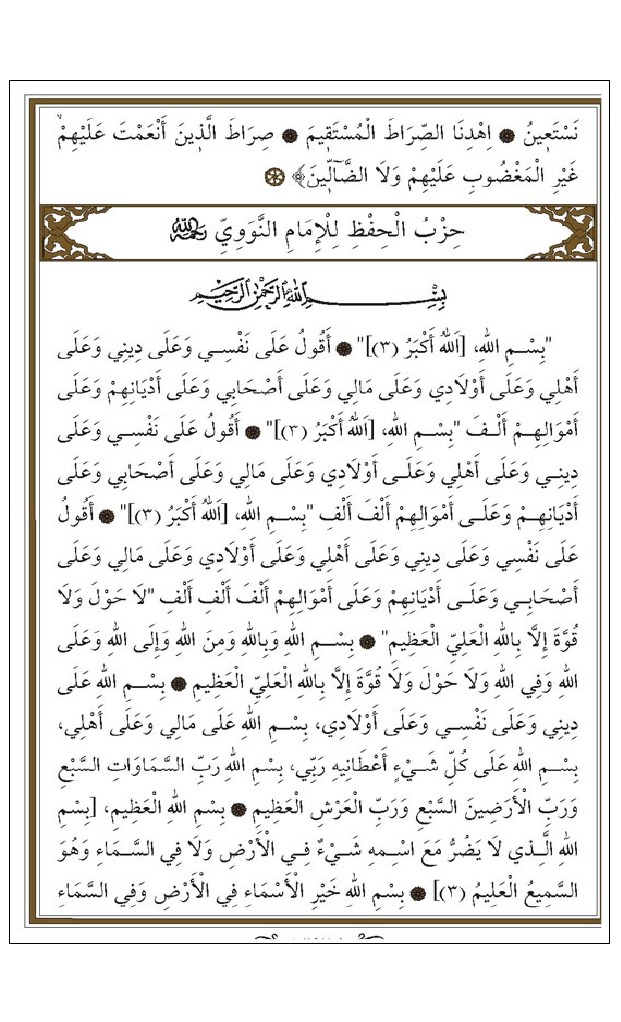 نَسْتَعِينُ ۞ اِهْدِنَا الصِّرَاطَ الْمُسْتَقِيمَ ۞ صِرَاطَ الَّذِينَ أَنْعَمْتَ عَلَيْهِمْ
غَيْرِ الْمَغْضُوبِ عَلَيْهِمْ وَلَا الضَّآلِّينَ﴾ ۞
حِزْبُ الْحِفْظِ لِلْإِمَامِ النَّوَوِيِّ رَحِمَهُ اللهُ
بِسْمِ اللهِ الرَّحْمٰنِ الرَّحِيمِ
"بِسْمِ اللهِ، [اَللهُ أَكْبَرُ (٣)]" ۞ أَقُولُ عَلَى نَفْسِي وَعَلَى دِينِي وَعَلَى
أَهْلِي وَعَلَى أَوْلَادِي وَعَلَى مَالِي وَعَلَى أَصْحَابِي وَعَلَى أَدْيَانِهِمْ وَعَلَى
أَمْوَالِهِمْ أَلْفَ "بِسْمِ اللهِ، [اَللهُ أَكْبَرُ (٣)]" ۞ أَقُولُ عَلَى نَفْسِي وَعَلَى
دِينِي وَعَلَى أَهْلِي وَعَلَى أَوْلَادِي وَعَلَى مَالِي وَعَلَى أَصْحَابِي وَعَلَى
أَدْيَانِهِمْ وَعَلَى أَمْوَالِهِمْ أَلْفَ أَلْفِ "بِسْمِ اللهِ، [اَللهُ أَكْبَرُ (٣)]" ۞ أَقُولُ
عَلَى نَفْسِي وَعَلَى دِينِي وَعَلَى أَهْلِي وَعَلَى أَوْلَادِي وَعَلَى مَالِي وَعَلَى
أَصْحَابِي وَعَلَى أَدْيَانِهِمْ وَعَلَى أَمْوَالِهِمْ أَلْفَ أَلْفِ أَلْفِ "لَا حَوْلَ وَلَا
قُوَّةَ إِلَّا بِاللهِ الْعَلِيِّ الْعَظِيمِ" ۞ بِسْمِ اللهِ وَبِاللهِ وَمِنَ اللهِ وَإِلَى اللهِ وَعَلَى
اللهِ وَفِي اللهِ وَلَا حَوْلَ وَلَا قُوَّةَ إِلَّا بِاللهِ الْعَلِيِّ الْعَظِيمِ ۞ بِسْمِ اللهِ عَلَى
دِينِي وَعَلَى نَفْسِي وَعَلَى أَوْلَادِي، بِسْمِ اللهِ عَلَى مَالِي وَعَلَى أَهْلِي،
بِسْمِ اللهِ عَلَى كُلِّ شَيْءٍ أَعْطَانِيهِ رَبِّي، بِسْمِ اللهِ رَبِّ السَّمَاوَاتِ السَّبْعِ
وَرَبِّ الْأَرَضِينَ السَّبْعِ وَرَبِّ الْعَرْشِ الْعَظِيمِ ۞ بِسْمِ اللهِ الْعَظِيمِ، [بِسْمِ
اللهِ الَّذِي لَا يَضُرُّ مَعَ اسْمِهِ شَيْءٌ فِي الْأَرْضِ وَلَا فِي السَّمَاءِ وَهُوَ
السَّمِيعُ الْعَلِيمُ (٣)] ۞ بِسْمِ اللهِ خَيْرِ الْأَسْمَاءِ فِي الْأَرْضِ وَفِي السَّمَاءِ